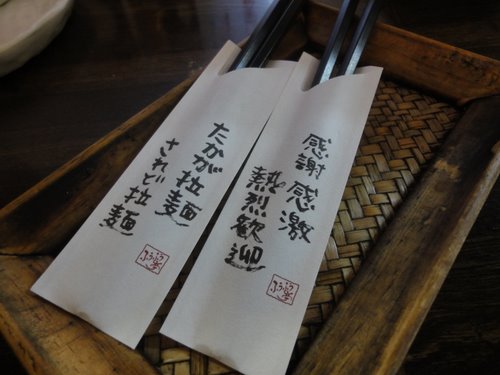 たかが拉麺
されど拉麺
感謝感激
熱烈歓迎